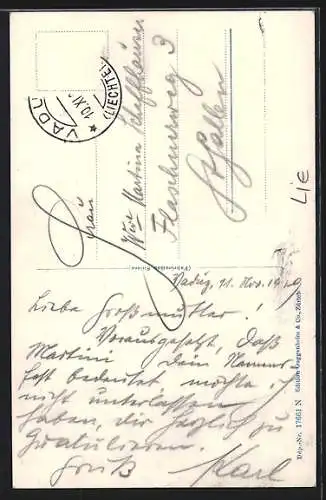 VADUZ
10.XI.
(LIECHTE
Frau
Wwe Martina Schafhauser
Fleschnerweg 3
St. Gallen
Lie
Vaduz, 11. Nov. 1919
Liebe Großmutter!
Vorausgesetzt, daß
Martini, Dein Namens-
fest bedeutet möchte ich
nicht unterlassen
haben, dir herzlich zu
Gratulieren.
Gruß Karl
Dép.-Nr. 17661 N Edition Guggenheim & Co., Zürich